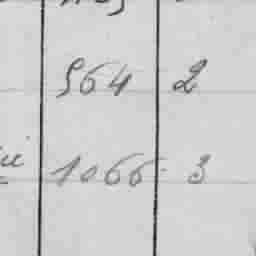 564 2
1066 3